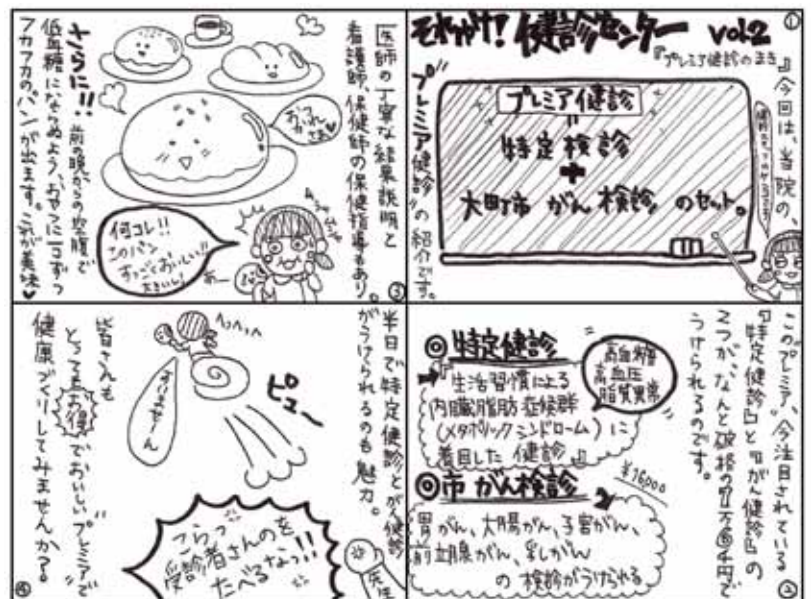 ①
それゆけ!健診センター vol.2
『プレミア健診のまき』
今回は、当院の、
"プレミア健診"の紹介です。
プレミア健診
=
特定検診
+
大町市 がん 検診 のセット。
②
このプレミア、今注目されている
『特定健診』と『がん健診』の
2つが、なんと破格の1万6千円で
うけられるのです。
◎特定健診
『生活習慣による
内臓脂肪症候群
(メタボリックシンドローム)に
着目した 健診』
高血糖
高血圧
脂質異常
◎市 がん検診
¥16000
胃がん、大腸がん、子宮がん、
前立腺がん、乳がん
の 検診がうけられる
③
医師の丁寧な結果説明と
看護師、保健師の保健指導もあり。
おつかれさま♥
さらに!!
前の晩からの空腹で
低血糖にならぬよう、おやつに一コずつ
フカフカのパンが出ます。これが美味♥
何コレ!!
このパン
すっごくおいしい!!
大きいし
④
半日で特定健診とがん健診
がうけられるのも魅力。
ピュ〜
すいませーん
こらっ
受診者さんのを
たべるなっ!!
先生
皆さんも
とってもお得でおいしい"プレミア"で
健康づくりしてみませんか?